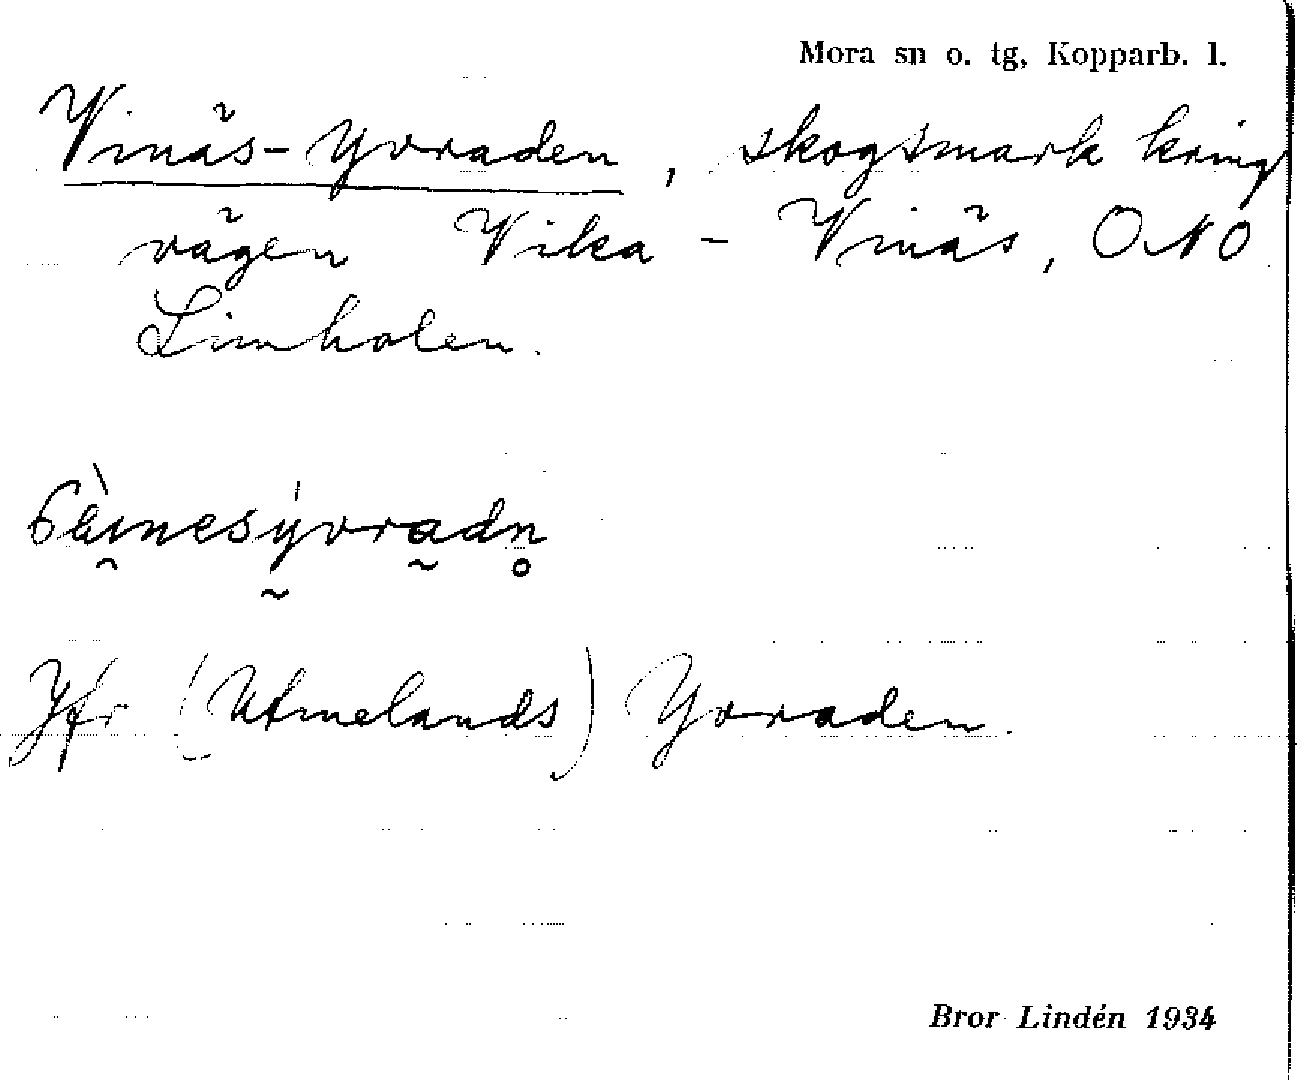 Mora sn o. tg, Kopparb. l.
Vinäs-Yvraden, skogsmark kring
vägen Vika – Vinäs, ONO
Limholen.
Jfr (Utmelands) Yvraden.
Bror Lindén 1934